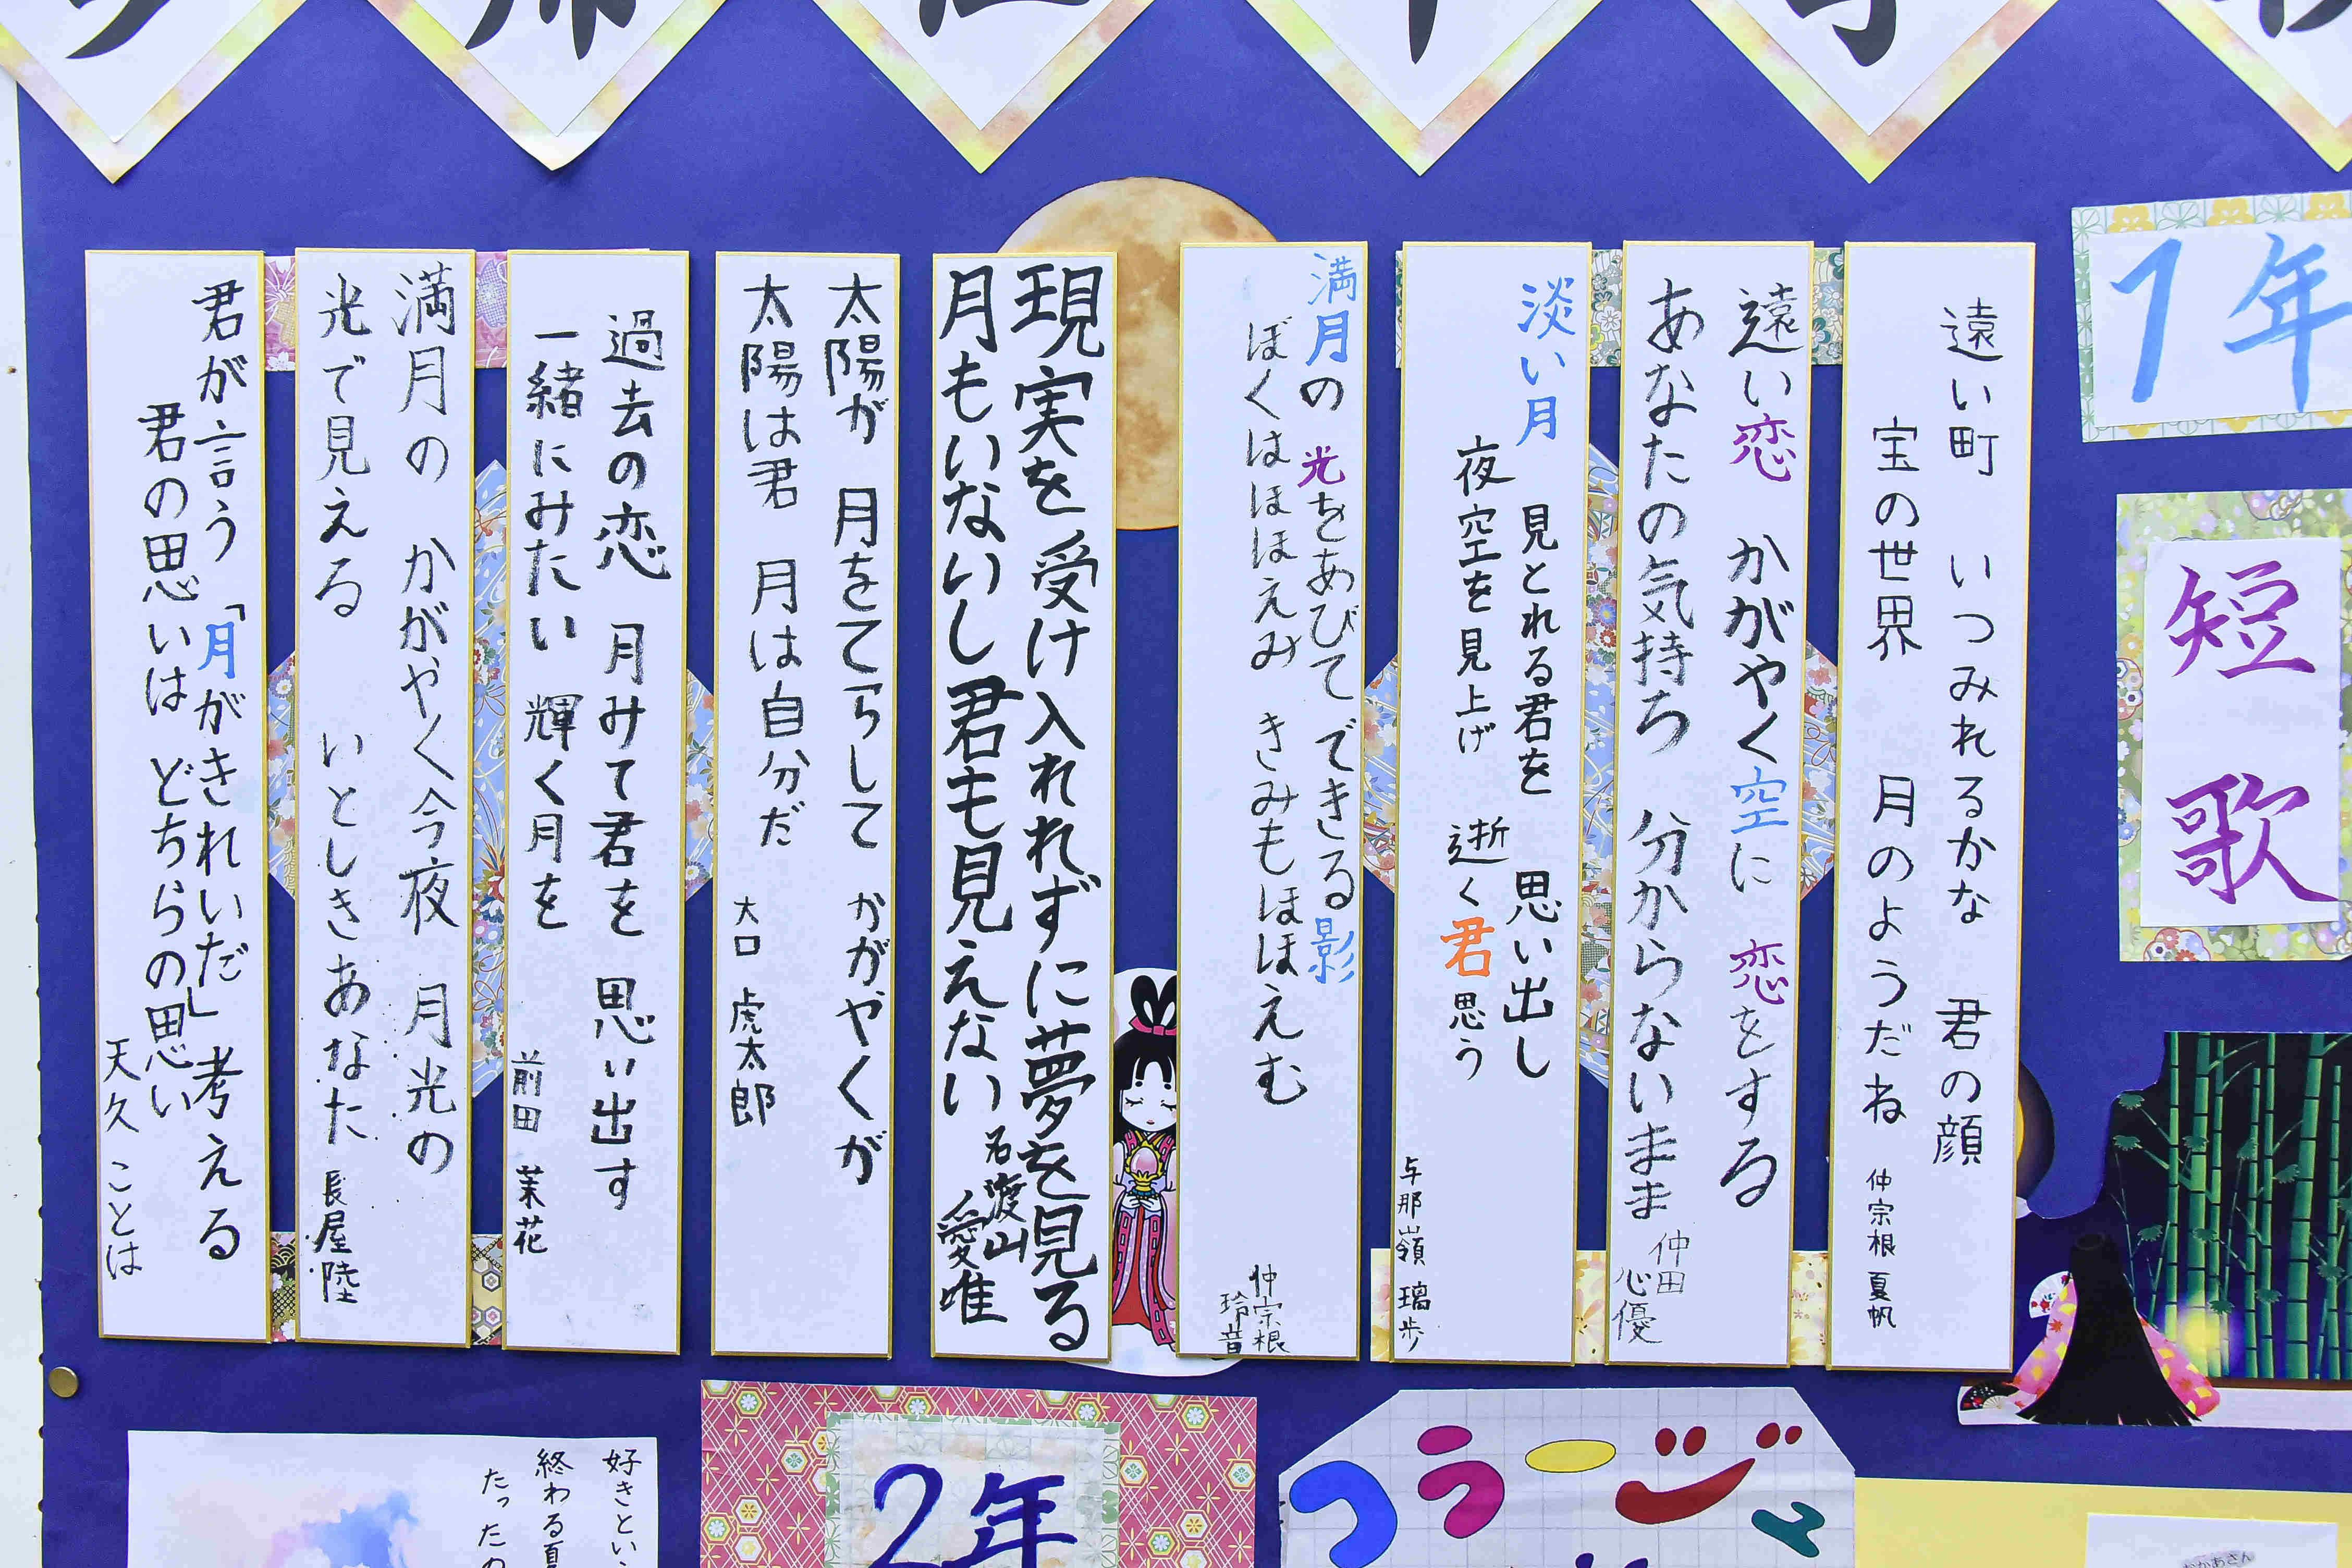 1年
短歌
遠い町 いつみれるかな 君の顔
宝の世界 月のようだね
仲宗根 夏帆
遠い恋 かがやく空に 恋をする
あなたの気持ち 分からないまま
仲田
心優
淡い月 見とれる君を 思い出し
夜空を見上げ 逝く君思う
与那嶺 璃歩
満月の 光をあびて できる影
ぼくはほほえみ きみもほほえむ
仲宗根
玲音
現実を受け入れずに夢を見る
月もいないし君も見えない
石渡山
愛唯
太陽が 月をてらして かがやくが
太陽は君 月は自分だ
大口 虎太郎
過去の恋 月みて君を 思い出す
一緒にみたい 輝く月を
前田 茉花
満月の かがやく今夜 月光の
光で見える いとしきあなた
長屋 陸
君が言う 「月がきれいだ」考える
君の思いは どちらの思い
天久 ことは
好きとい
終わる夏
たったの
2年
コラージュ
おかあさん